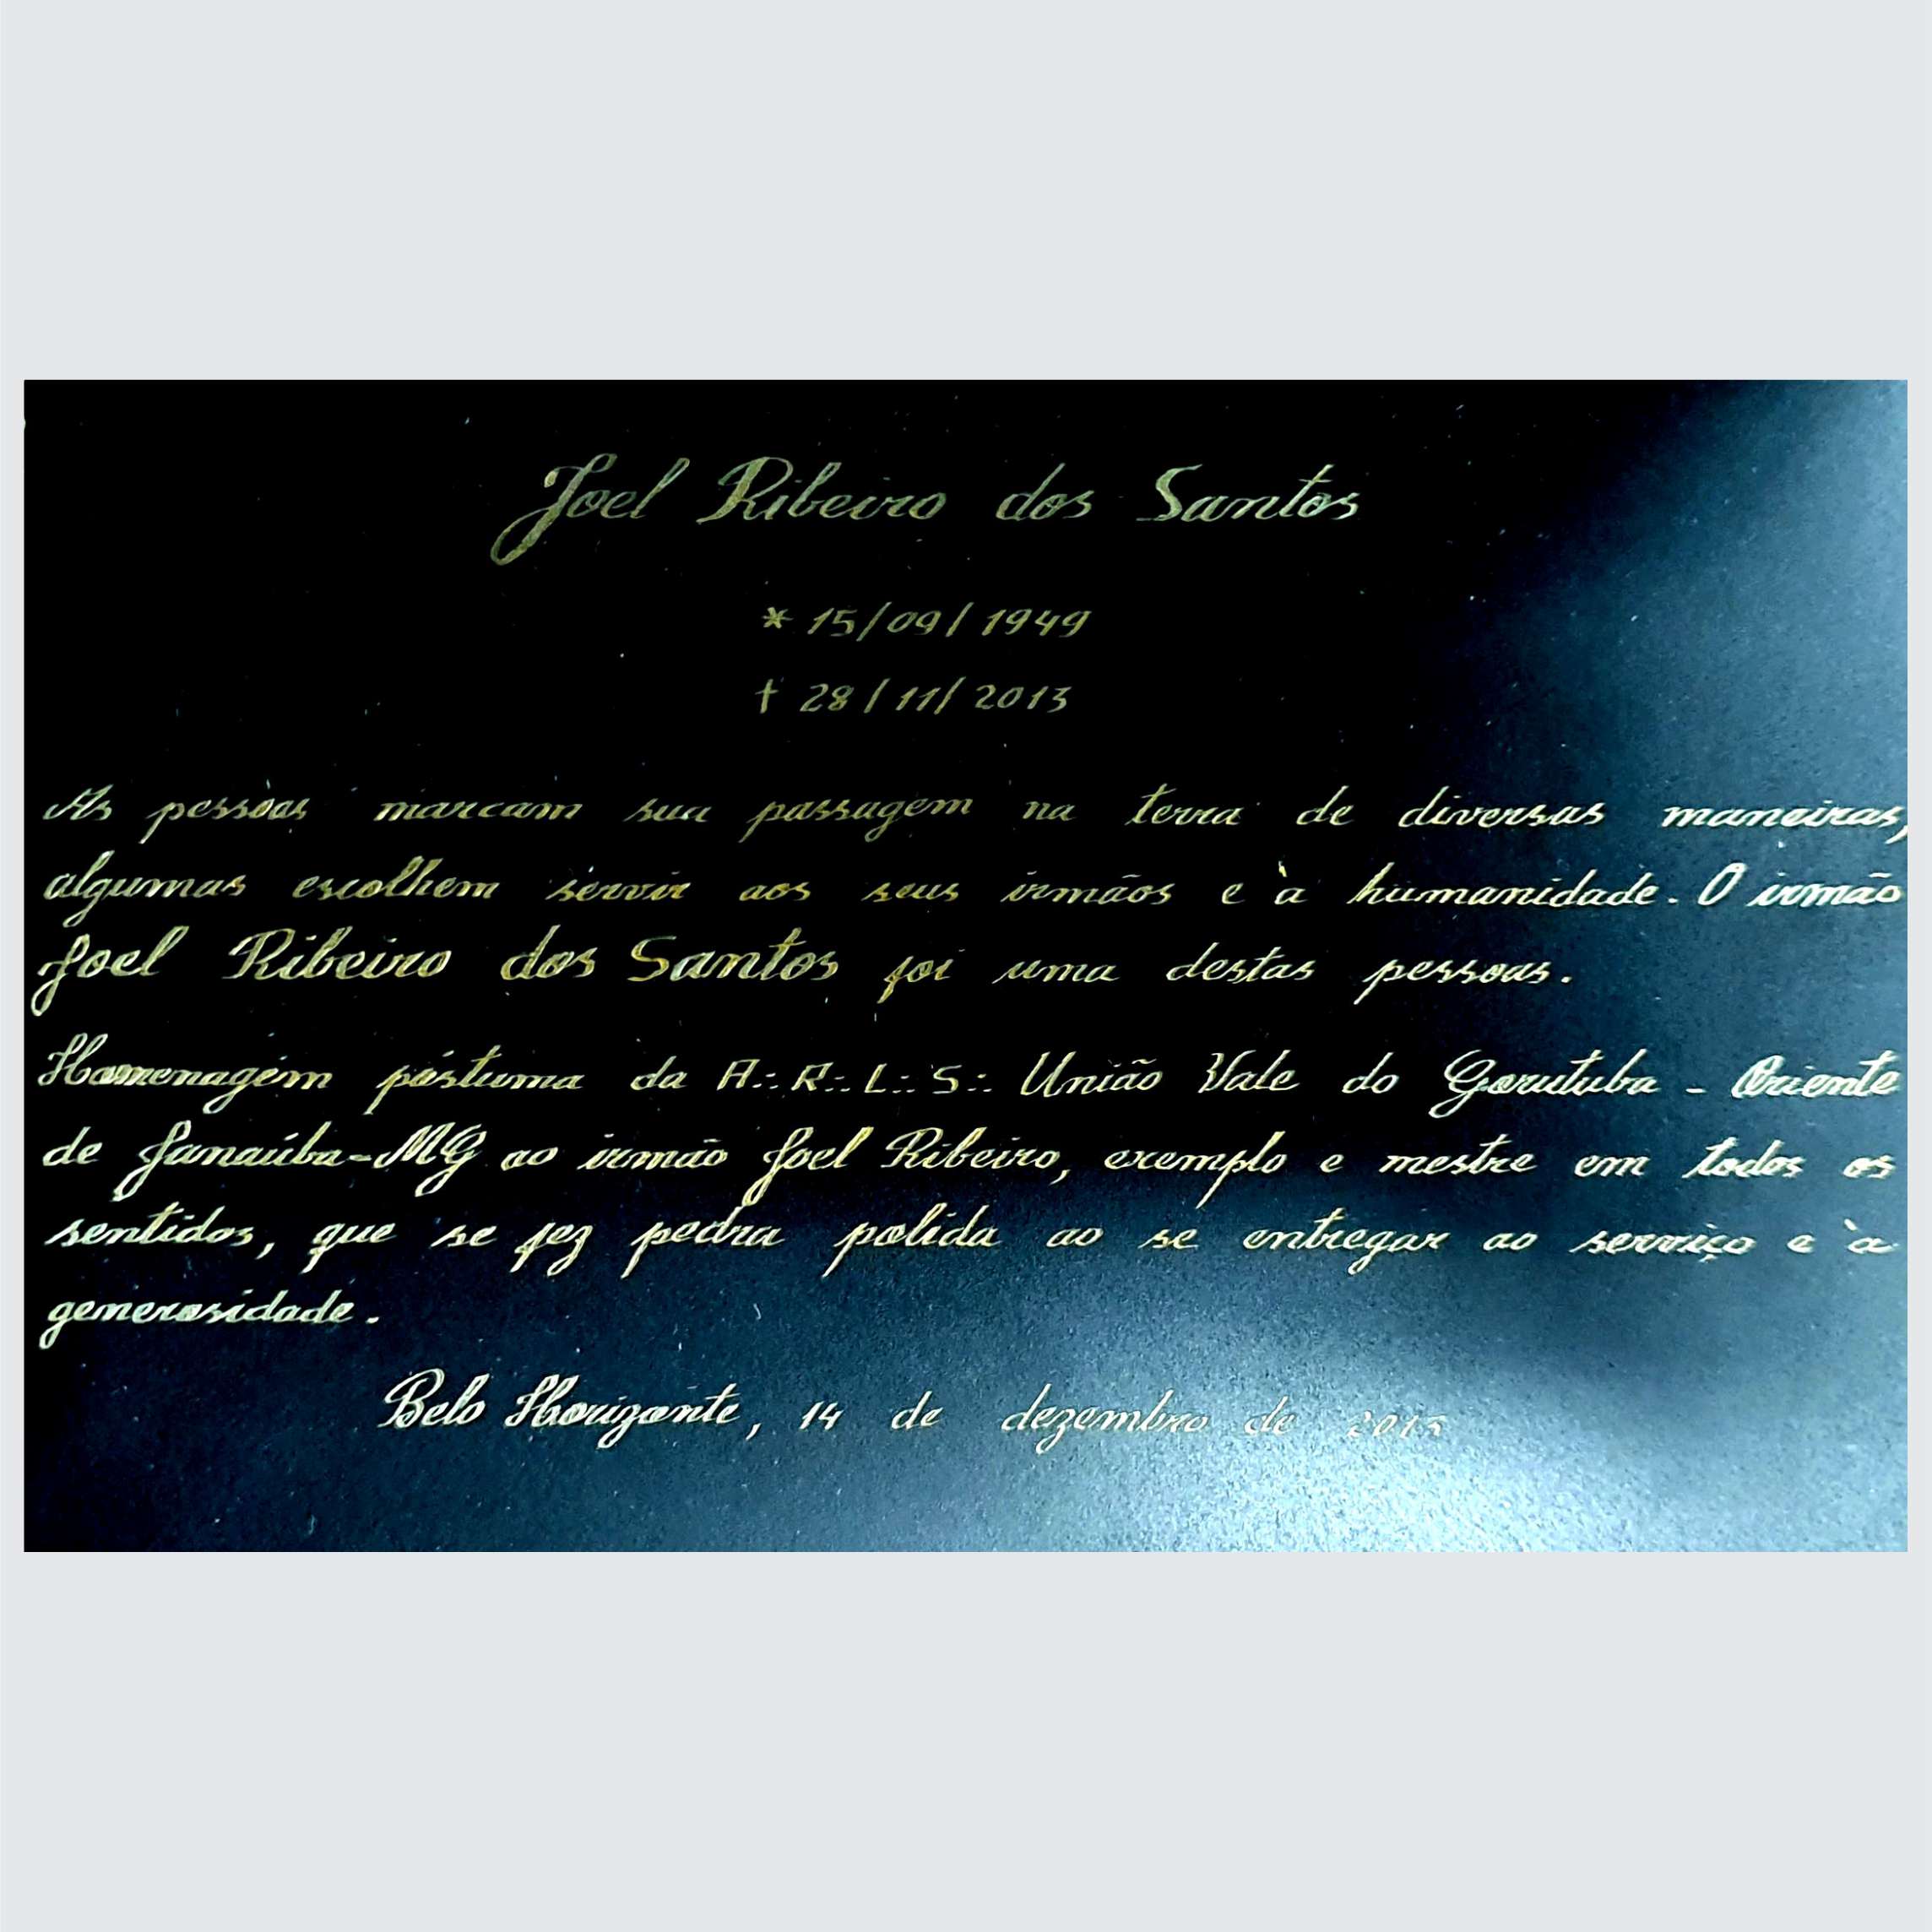 Joel Ribeiro dos Santos
* 15/09/1949
† 28/11/2013
As pessoas marcam sua passagem na terra de diversas maneiras,
algumas escolhem servir aos seus irmãos e à humanidade. O irmão
Joel Ribeiro dos Santos foi uma destas pessoas.
Homenagem póstuma da A∴ R∴ L∴ S∴ União Vale do Gorutuba - Oriente
de Janaúba-MG ao irmão Joel Ribeiro, exemplo e mestre em todos os
sentidos, que se fez pedra polida ao se entregar ao serviço e à
generosidade.
Belo Horizonte, 14 de dezembro de 2013